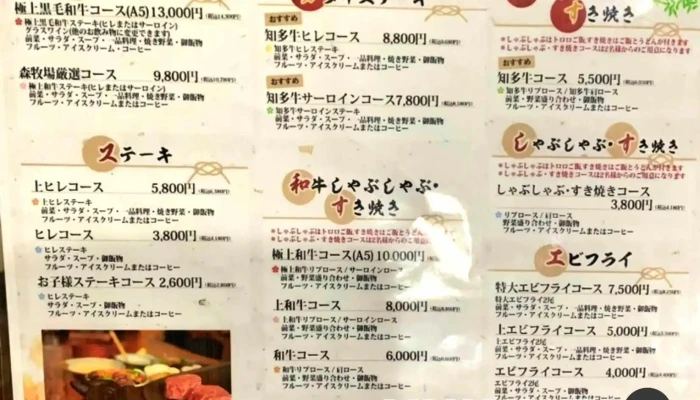 極上黒毛和牛コース(A5)13,000円
極上黒毛和牛ステーキ(ヒレまたはサーロイン)
グラスワイン(他のお飲物に変更できます)
前菜・サラダ・スープ・一品料理・焼き野菜・御飯物
フルーツ・アイスクリーム・コーヒー
森牧場厳選コース 9,800円
極上和牛ステーキ(ヒレまたはサーロイン)
前菜・サラダ・スープ・一品料理・焼き野菜・御飯物
フルーツ・アイスクリームまたはコーヒー
ステーキ
上ヒレコース 5,800円
上ヒレステーキ
前菜・サラダ・スープ・一品料理・焼き野菜・御飯物
フルーツ・アイスクリームまたはコーヒー
ヒレコース 3,800円
ヒレステーキ
サラダ・スープ・焼き野菜・御飯物
フルーツ・アイスクリームまたはコーヒー
お子様ステーキコース 2,600円
ヒレステーキ
サラダ・スープ・御飯物
フルーツ・アイスクリームまたはコーヒー
おすすめ
知多牛ヒレコース 8,800円
知多牛ヒレステーキ
前菜・サラダ・スープ・一品料理・焼き野菜・御飯物
フルーツ・アイスクリームまたはコーヒー
おすすめ
知多牛サーロインコース7,800円
知多牛サーロインステーキ
前菜・サラダ・スープ・一品料理・焼き野菜・御飯物
フルーツ・アイスクリームまたはコーヒー
和牛しゃぶしゃぶ・
すき焼き
※しゃぶしゃぶはトロロご飯、すき焼きはご飯とうどんが付きます
※しゃぶしゃぶ・すき焼きコースは2名様からのご用意になります
極上和牛コース(A5) 10,000円
極上和牛リブロース/サーロインロース
前菜・野菜盛り合わせ・御飯物
フルーツ・アイスクリームまたはコーヒー
上和牛コース 8,000円
上和牛リブロース/サーロインロース
前菜・野菜盛り合わせ・御飯物
フルーツ・アイスクリームまたはコーヒー
和牛コース 6,000円
和牛リブロース/肩ロース
前菜・野菜盛り合わせ・御飯物
フルーツ・アイスクリームまたはコーヒー
すき焼き
※しゃぶしゃぶはトロロご飯、すき焼きはご飯とうどんが付きます
※しゃぶしゃぶ・すき焼きコースは2名様からのご用意になります
おすすめ
知多牛コース 5,500円
知多牛リブロース/知多牛肩ロース
前菜・野菜盛り合わせ・御飯物
フルーツ・アイスクリームまたはコーヒー
しゃぶしゃぶ・すき焼き
※しゃぶしゃぶはトロロご飯、すき焼きはご飯とうどんが付きます
※しゃぶしゃぶ・すき焼きコースは2名様からのご用意になります
しゃぶしゃぶ・すき焼きコース
3,800円
リブロース/肩ロース
野菜盛り合わせ・御飯物
フルーツ・アイスクリームまたはコーヒー
エビフライ
特大エビフライコース 7,500円
特大エビフライ2尾
前菜・サラダ・スープ・一品料理・焼き野菜・御飯物
フルーツ・アイスクリームまたはコーヒー
上エビフライコース 5,000円
上エビフライ2尾
前菜・サラダ・スープ・焼き野菜・御飯物
フルーツ・アイスクリームまたはコーヒー
エビフライコース 4,000円
エビフライ2尾